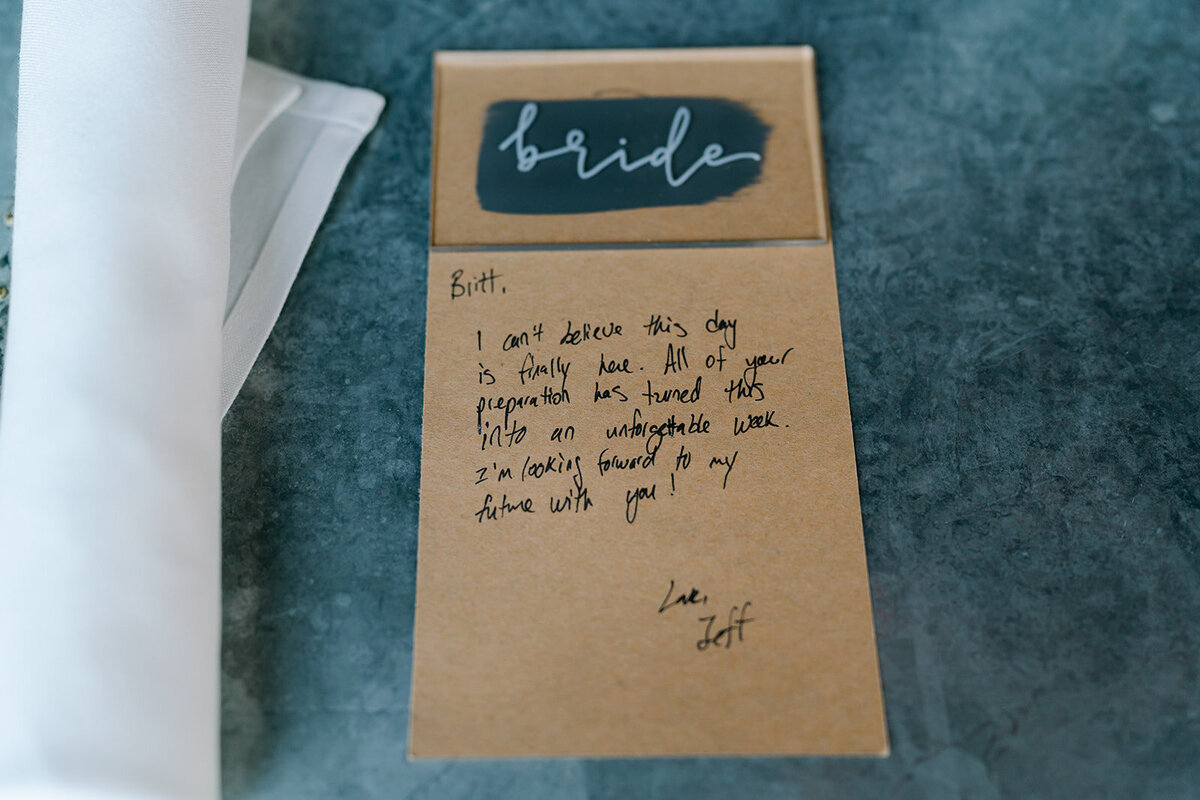 bride
Britt,
I can't believe this day
is finally here. All of your
preparation has turned this
into an unforgettable week.
I'm looking forward to my
future with you!
Love,
Jeff